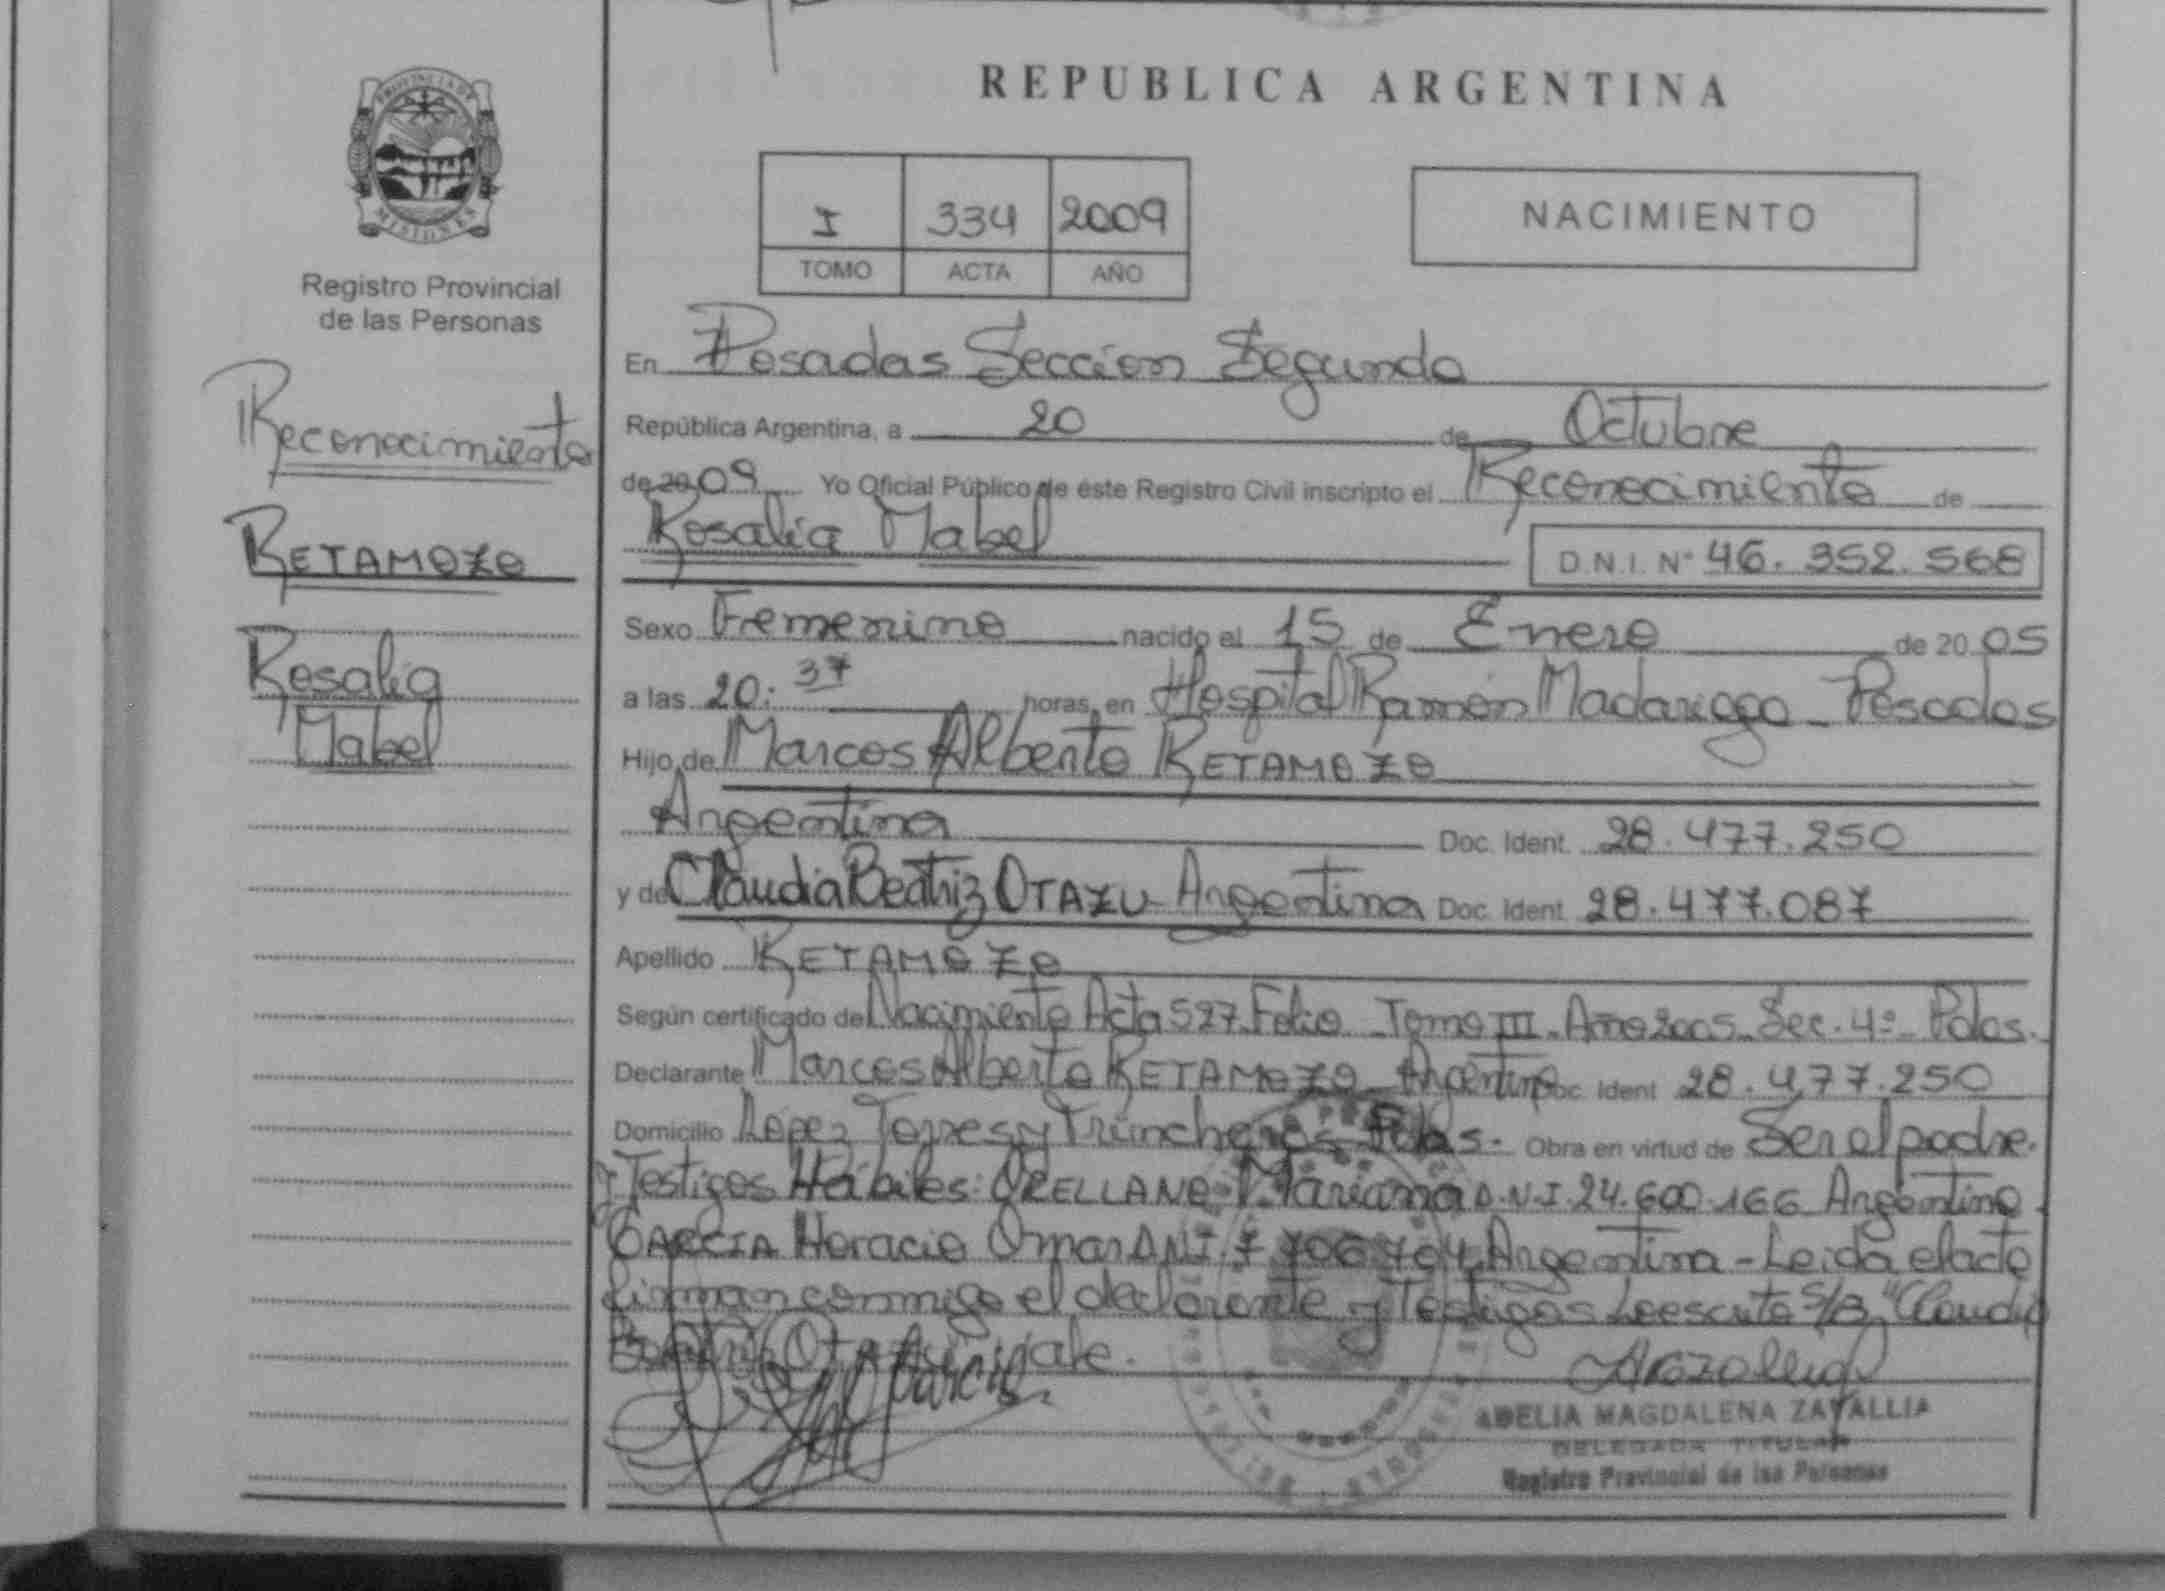 REPUBLICA ARGENTINA
PROVINCIA DE
MISIONES
Registro Provincial
de las Personas
I 334 2009
TOMO ACTA AÑO
NACIMIENTO
Reconocimiento
RETAMOZO
Rosalia
Mabel
En Posadas Seccion Segunda
República Argentina, a 20 de Octubre
de 2009 Yo Oficial Público de éste Registro Civil inscripto el Reconocimiento de
Rosalia Mabel D.N.I. Nº 46.352.568
Sexo Femenino nacido el 15 de Enero de 2005
a las 20:37 horas, en Hospital Ramón Madariaga - Posadas
Hijo de Marcos Alberto RETAMOZO
Argentina Doc. Ident. 28.477.250
y de Claudia Beatriz OTAZU - Argentina Doc. Ident. 28.477.087
Apellido RETAMOZO
Según certificado de Nacimiento Acta 527 Folio - Tomo III - Año 2005 - Sec. 4º - Pdas.
Declarante Marcos Alberto RETAMOZO - Argentino Doc. Ident. 28.477.250
Domicilio López Torres y Trincheras Pdas. - Obra en virtud de Ser el padre.
y Testigos Hábiles: ORELLANO Mariana D.N.I. 24.600.166 Argentina -
GARCIA Horacio Omar D.N.I. Argentina - Leida el acto
firman conmigo el declarante y Testigos Lo escrito S/B "Claudia
Beatriz Otazu" vale.
Garcia
ADELIA MAGDALENA ZAYALLIA
DELEGADA TITULAR
Registro Provincial de las Personas